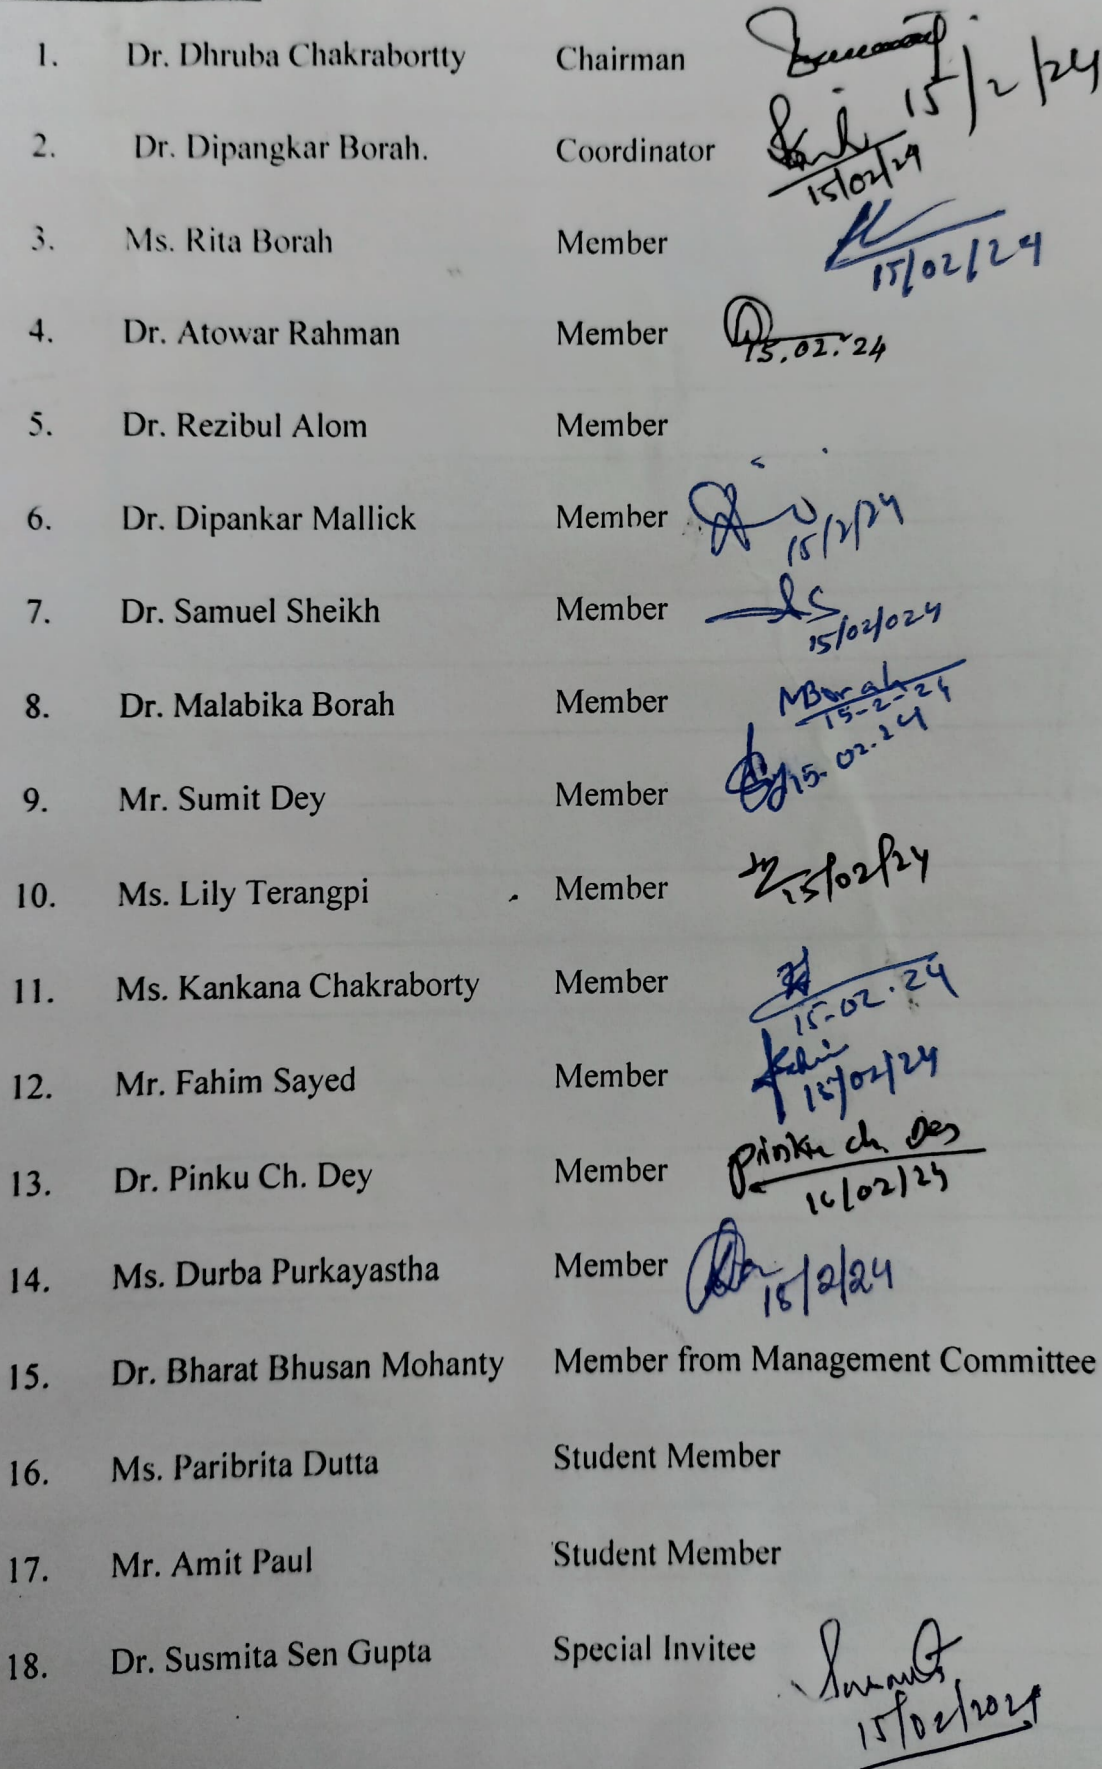 1. Dr. Dhruba Chakrabortty Chairman 15/2/24
2. Dr. Dipangkar Borah. Coordinator 15/02/24
3. Ms. Rita Borah Member 15/02/24
4. Dr. Atowar Rahman Member 15.02.24
5. Dr. Rezibul Alom Member
6. Dr. Dipankar Mallick Member 15/2/24
7. Dr. Samuel Sheikh Member 15/02/024
8. Dr. Malabika Borah Member MBorah 15-2-24
9. Mr. Sumit Dey Member 15.02.24
10. Ms. Lily Terangpi Member 15/02/24
11. Ms. Kankana Chakraborty Member 15-02.24
12. Mr. Fahim Sayed Member 15/02/24
13. Dr. Pinku Ch. Dey Member Pinku ch. Dey
14. Ms. Durba Purkayastha Member 15/2/24
15. Dr. Bharat Bhusan Mohanty Member from Management Committee
16. Ms. Paribrita Dutta Student Member
17. Mr. Amit Paul Student Member
18. Dr. Susmita Sen Gupta Special Invitee 15/02/2024